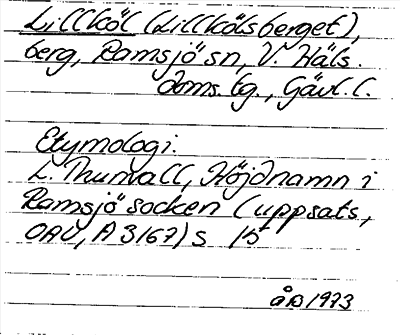 Lillköl (Lillkölsberget),
berg, Ramsjö sn, V. Häls.
doms.bg., Gävl.l.
Etymologi.
L. Thumall, Höjdnamn i
Ramsjö socken (uppsats,
OAU, A 3167) s 15
åB 1973